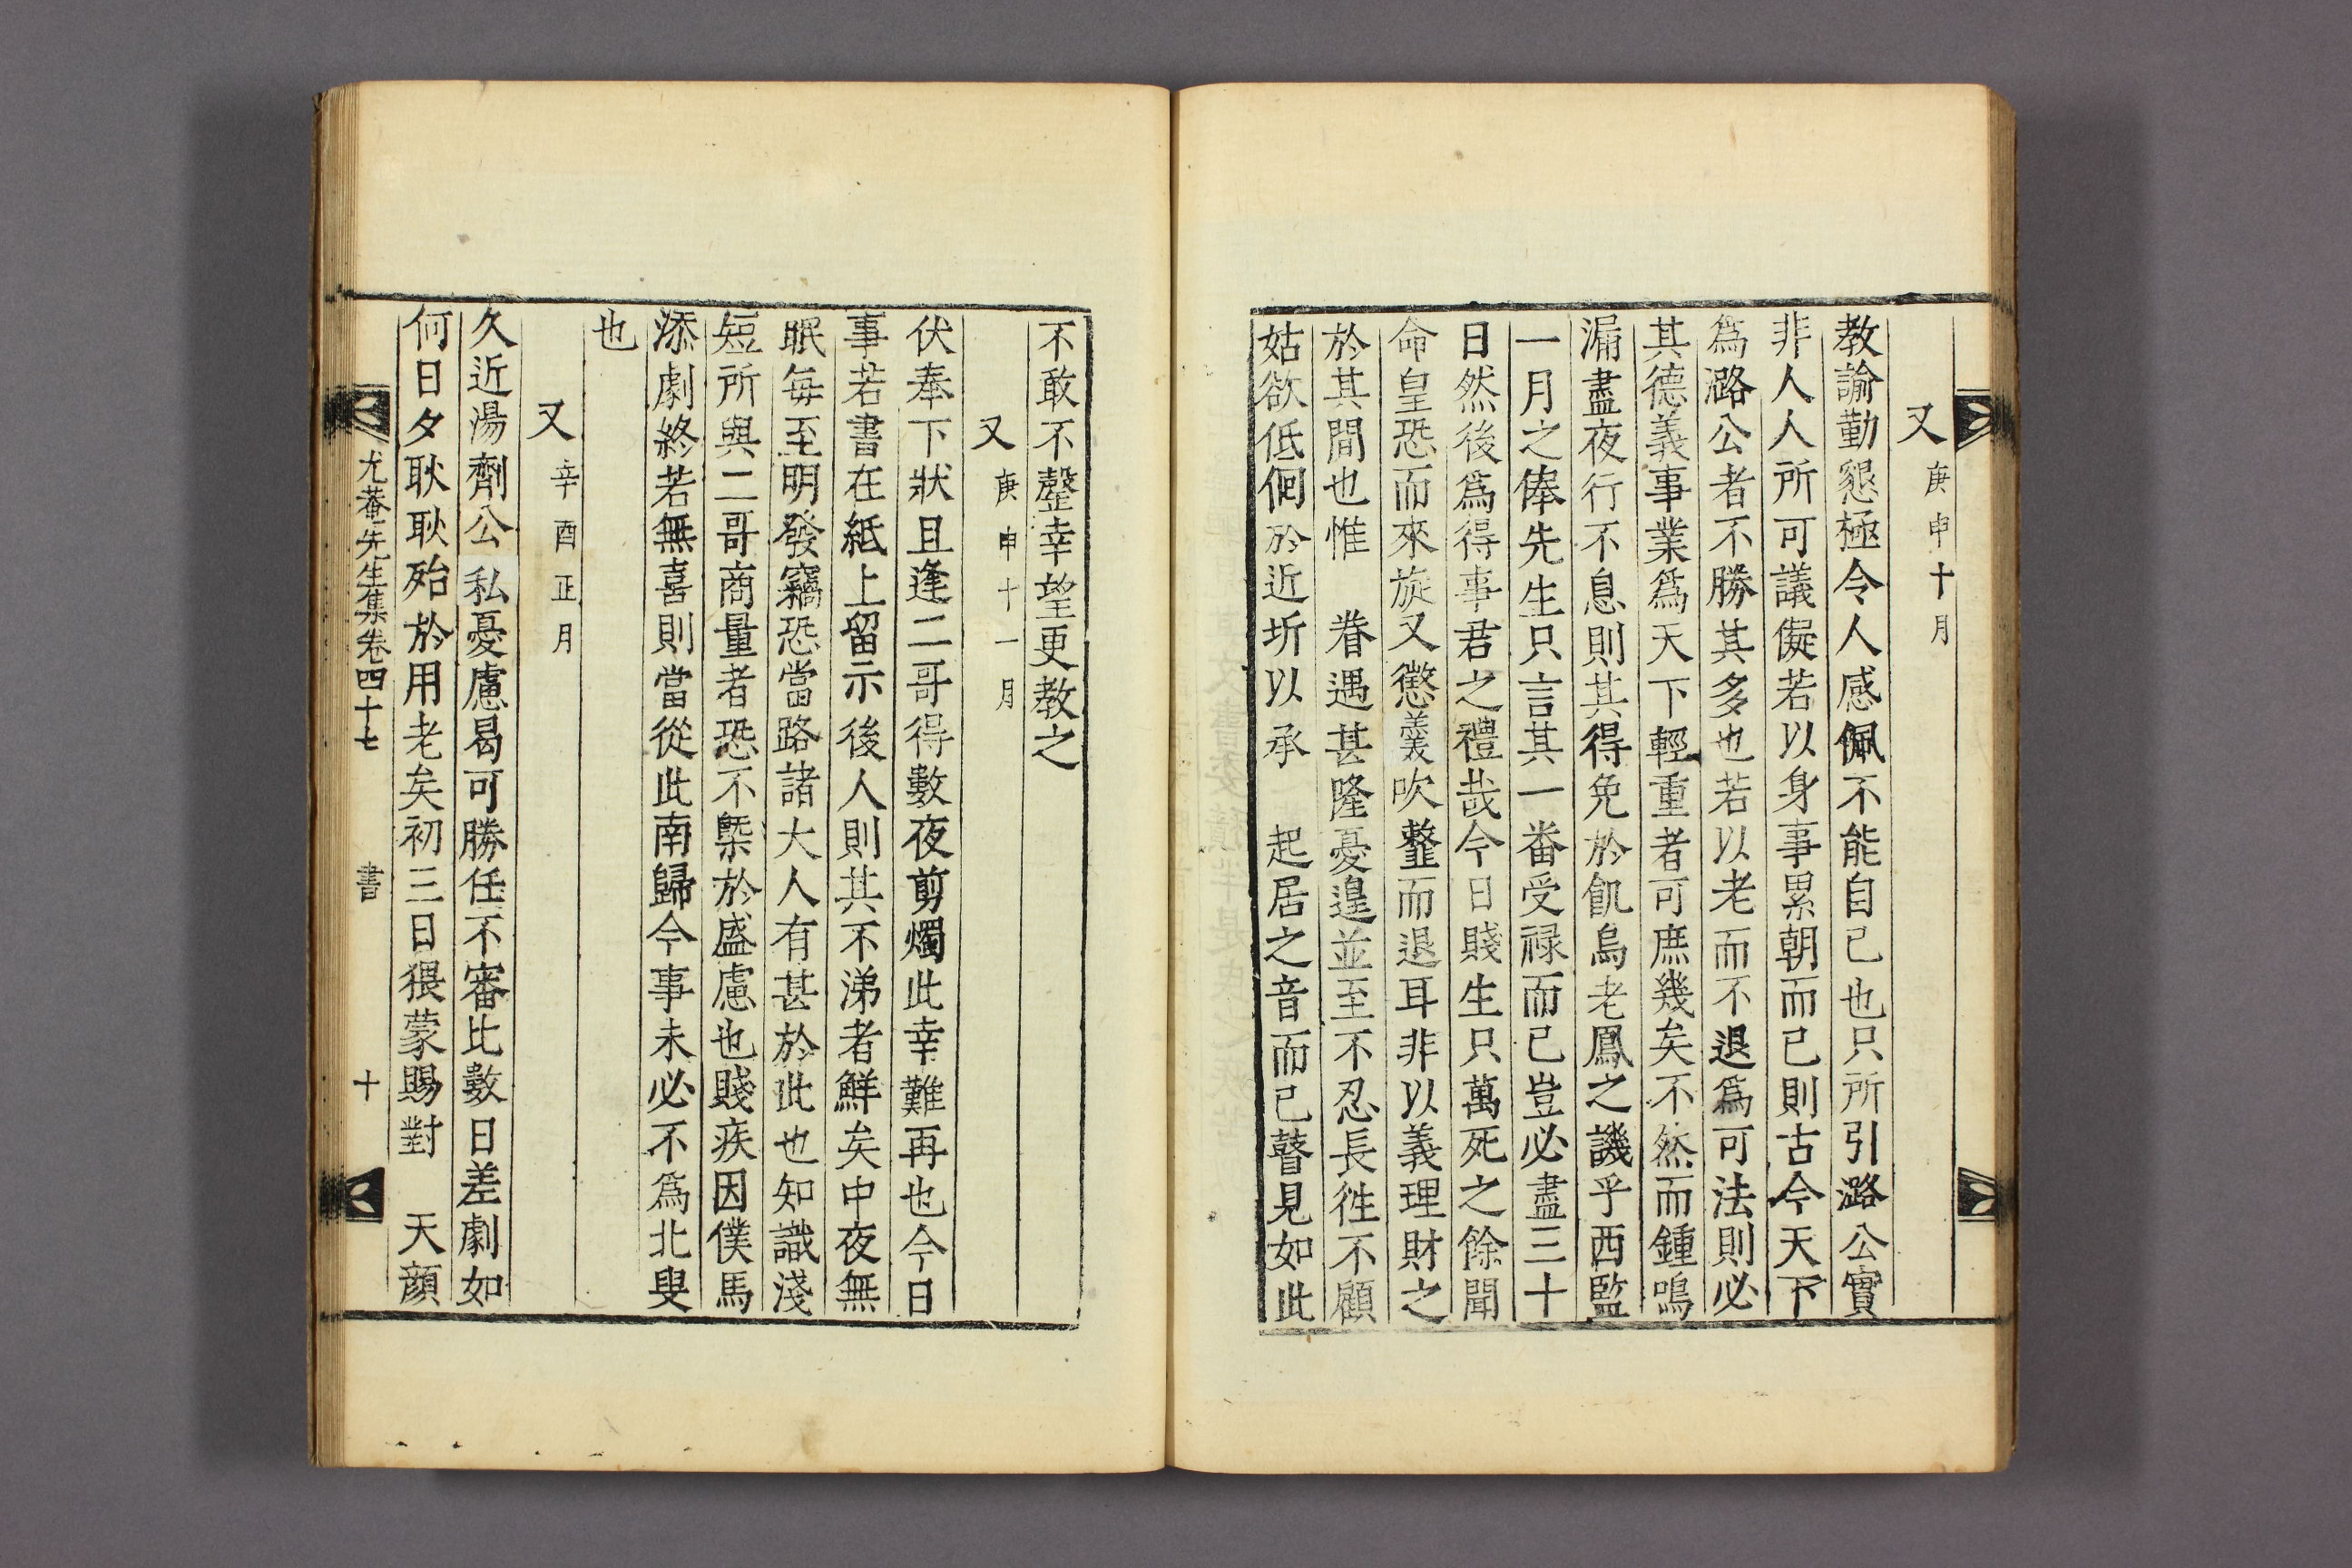 又庚申十月
教諭勤懇極令人感佩不能自已也只所引潞公實
非人人所可議儗若以身事累朝而已則古今天下
爲潞公者不勝其多也若以老而不退爲可法則必
其德義事業爲天下輕重者可庶幾矣不然而鍾鳴
漏盡夜行不息則其得免於飢烏老鳳之譏乎西監
一月之俸先生只言其一番受祿而已豈必盡三十
日然後爲得事君之禮哉今日賤生只萬死之餘聞
命皇恐而來旋又懲羹吹韲而退耳非以義理財之
於其間也惟　眷遇甚隆憂遑並至不忍長徃不顧
姑欲低佪於近圻以承　起居之音而已瞽見如此
不敢不罄幸望更教之
又庚申十一月
伏奉下狀且逢二哥得數夜剪燭此幸難再也今日
事若書在紙上留示後人則其不涕者鮮矣中夜無
眠每至明發竊恐當路諸大人有甚於此也知識淺
短所與二哥商量者恐不槩於盛慮也賤疾因僕馬
添劇終若無喜則當從此南歸今事未必不爲北叟
也
又辛酉正月
久近湯劑公私憂慮曷可勝任不審比數日差劇如
何日夕耿耿殆於用老矣初三日猥蒙賜對　天顔
尤菴先生集卷四十七　書　十